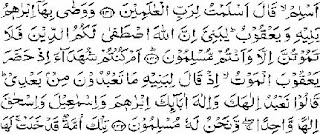 أَسْلِمْ ۖ قَالَ أَسْلَمْتُ لِرَبِّ ٱلْعَٰلَمِينَ ۝١٣١ وَوَصَّىٰ بِهَآ إِبْرَٰهِـۧمُ
بَنِيهِ وَيَعْقُوبُ يَٰبَنِىَّ إِنَّ ٱللَّهَ ٱصْطَفَىٰ لَكُمُ ٱلدِّينَ فَلَا
تَمُوتُنَّ إِلَّا وَأَنتُم مُّسْلِمُونَ ۝١٣٢ أَمْ كُنتُمْ شُهَدَآءَ إِذْ حَضَرَ
يَعْقُوبَ ٱلْمَوْتُ إِذْ قَالَ لِبَنِيهِ مَا تَعْبُدُونَ مِنۢ بَعْدِى
قَالُوا۟ نَعْبُدُ إِلَٰهَكَ وَإِلَٰهَ ءَابَآئِكَ إِبْرَٰهِـۧمَ وَإِسْمَٰعِيلَ وَإِسْحَٰقَ
إِلَٰهًا وَٰحِدًا وَنَحْنُ لَهُۥ مُسْلِمُونَ ۝١٣٣ تِلْكَ أُمَّةٌ قَدْ خَلَتْ ۖ لَهَا